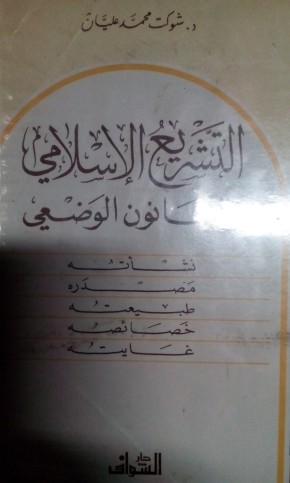 د. شوكت محمد عليان
التشريع الإسلامي
انون الوضعي
نشأته
مصدره
طبيعته
خصائصه
غايته
دار
الشواف